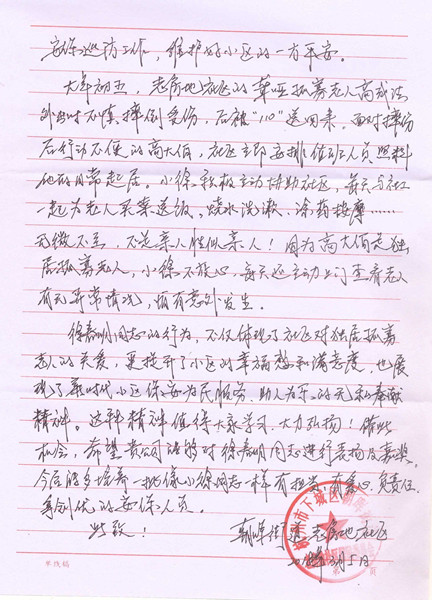 安保巡防工作，维护好小区的一方平安。
大年初五，老居地社区的聋哑孤寡老人高成法
外出时不慎摔倒受伤，后被“110”送回来。面对摔伤
后行动不便的高大伯，社区立即安排值班人员照料
他的日常起居。小徐积极主动协助社区，每天与社工
一起为老人买菜送饭、烧水洗漱、涂药按摩……
无微不至，不是亲人胜似亲人！因为高大伯是独
居孤寡老人，小徐不放心，每天还主动上门查看老人
有无异常情况，预有意外发生。
徐春明同志的行为，不仅体现了社区对独居孤寡
老人的关爱，更提升了小区的幸福感和满意度，也展
现了新时代小区保安为民服务、助人为乐的无私奉献
精神。这种精神值得大家学习，大力弘扬！借此
机会，希望贵公司能够对徐春明同志进行表扬及嘉奖，
今后能多培养一批像小徐同志一样有担当、有爱心、负责任、
争创优的安保人员。
此致！
朝晖街道老居地社区
2018年3月5日
杭州市下城区朝晖